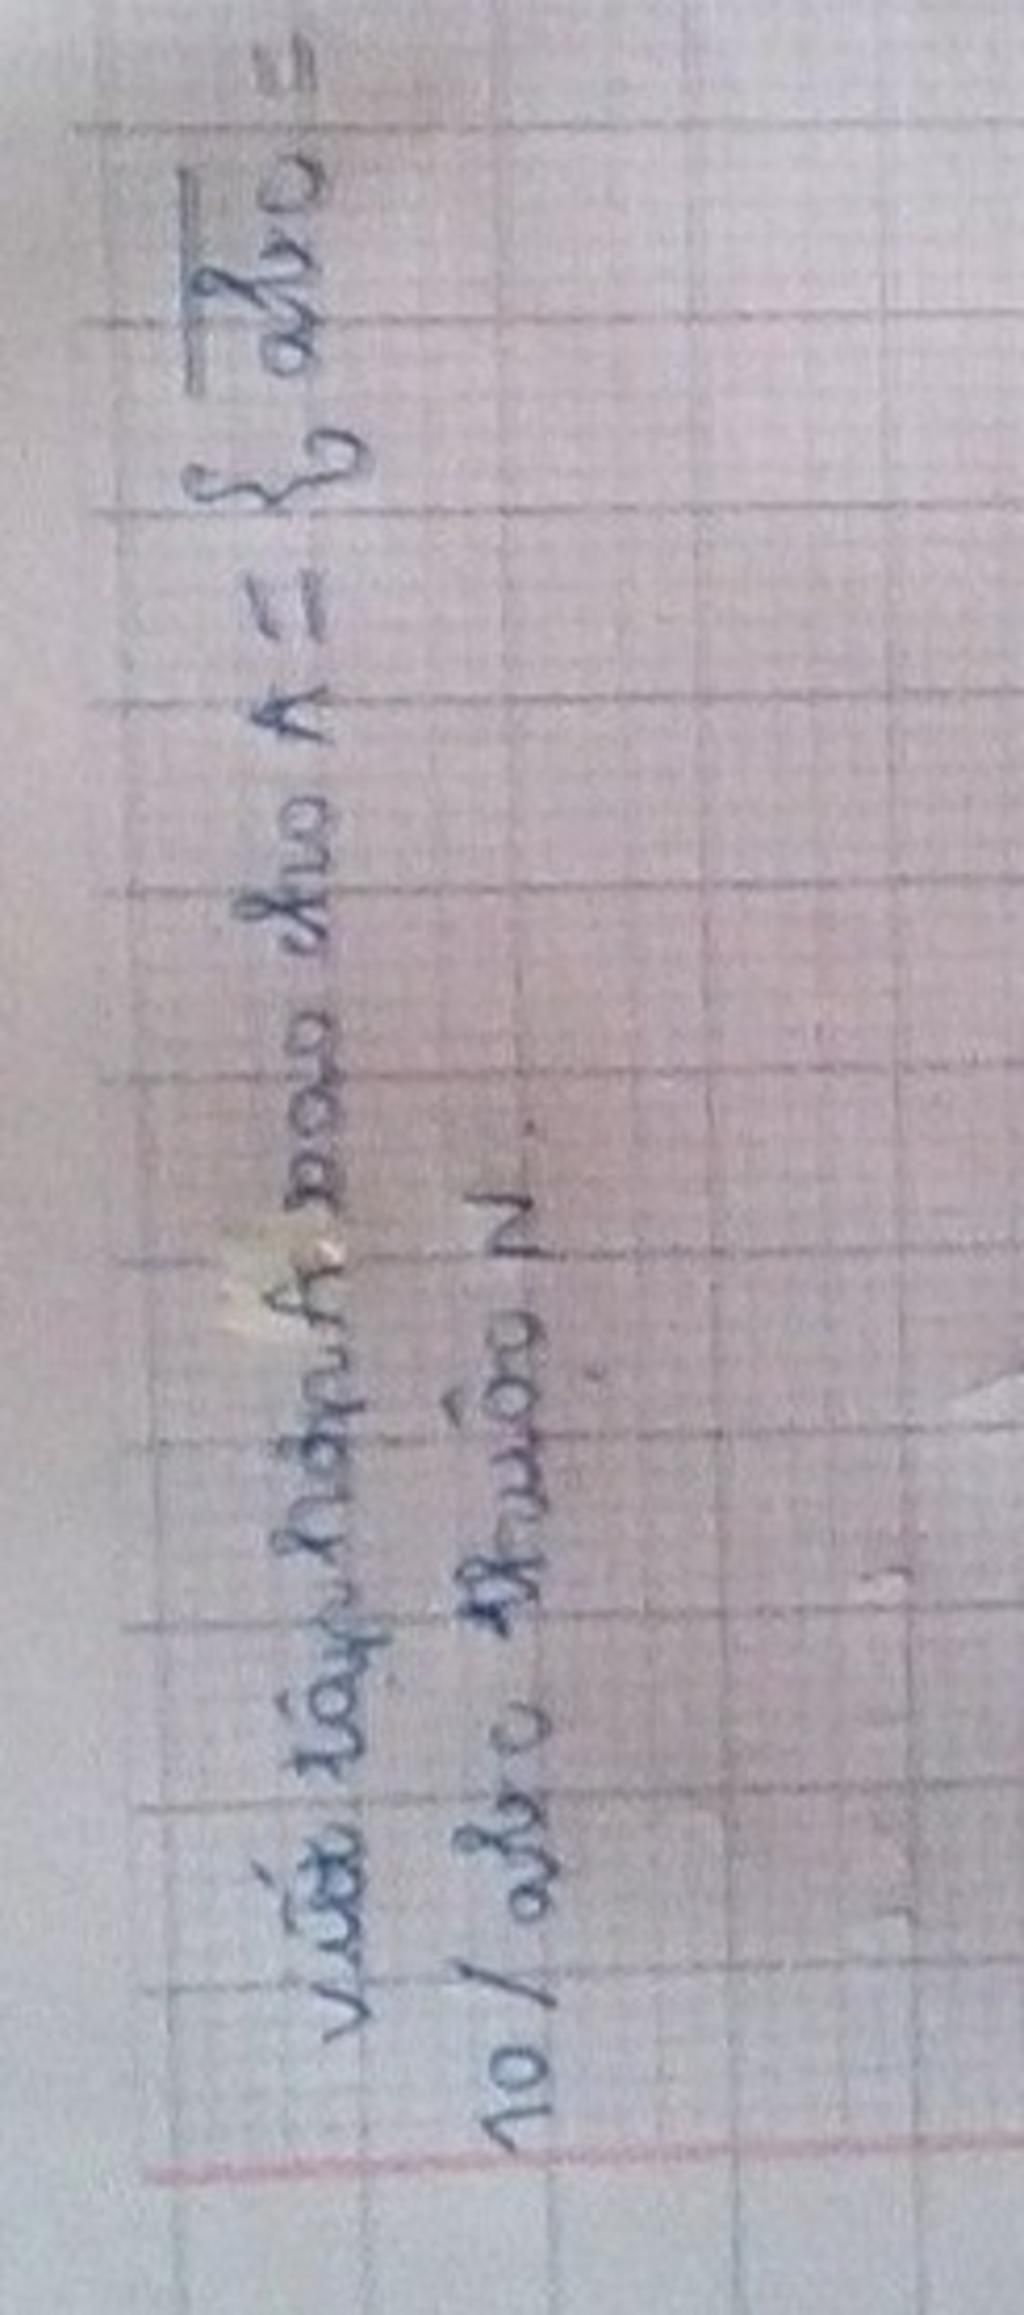 Viết tập hợp A sao cho A = { \overline{abc} =
10 / abc thuộc N.